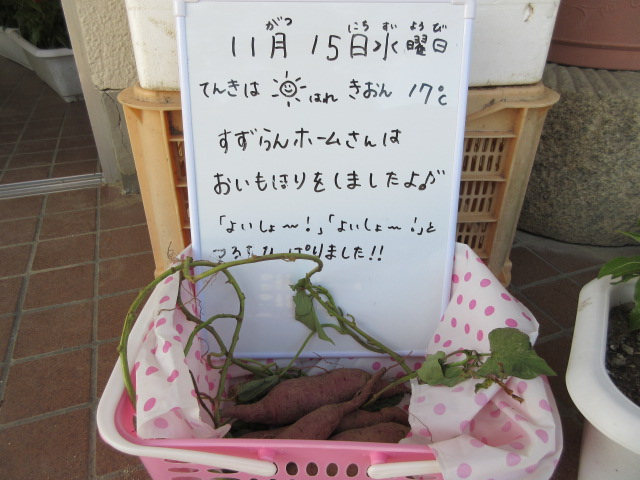 がつ にち すいようび
11月 15日水曜日
てんきは はれ きおん 17℃
すずらんホームさんは
おいもほりをしましたよ♪
「よいしょ〜！」「よいしょ〜！」と
つるを ひっぱりました!!